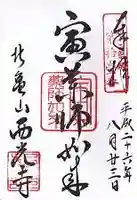 奉拝
平成二十六年
八月廿三日
寅薬師如来
北亀山
西光寺